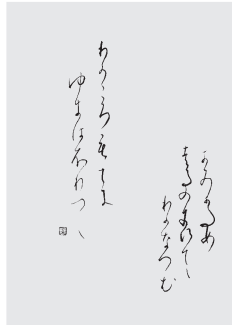 きみかため
はるの野にいてゝ
わかなつむ
わかころもてに
ゆきは不りつゝ